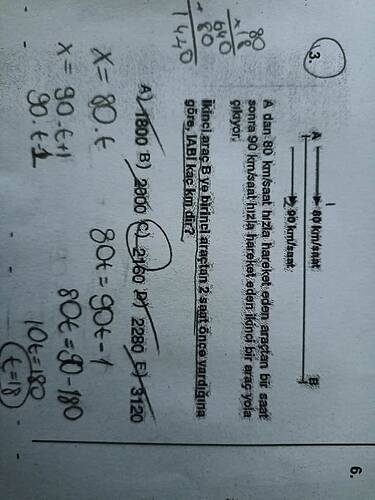 3.
80
x18
640
+ 80
1440
A
B
80 km/saat
90 km/saat
A dan 80 km/saat hızla hareket eden araçtan bir saat
sonra 90 km/saat hızla hareket eden ikinci bir araç yola
çıkıyor.
İkinci araç B ye birinci araçtan 2 saat önce vardığına
göre, IABI kaç km dir?
A) 1800 B) 2000 C) 2160 D) 2280 E) 3120
x = 80.t
80t = 90t - 1
x = 90.t+1
80t = 90 - 180
90.t-1
10t=180
t=18
6.